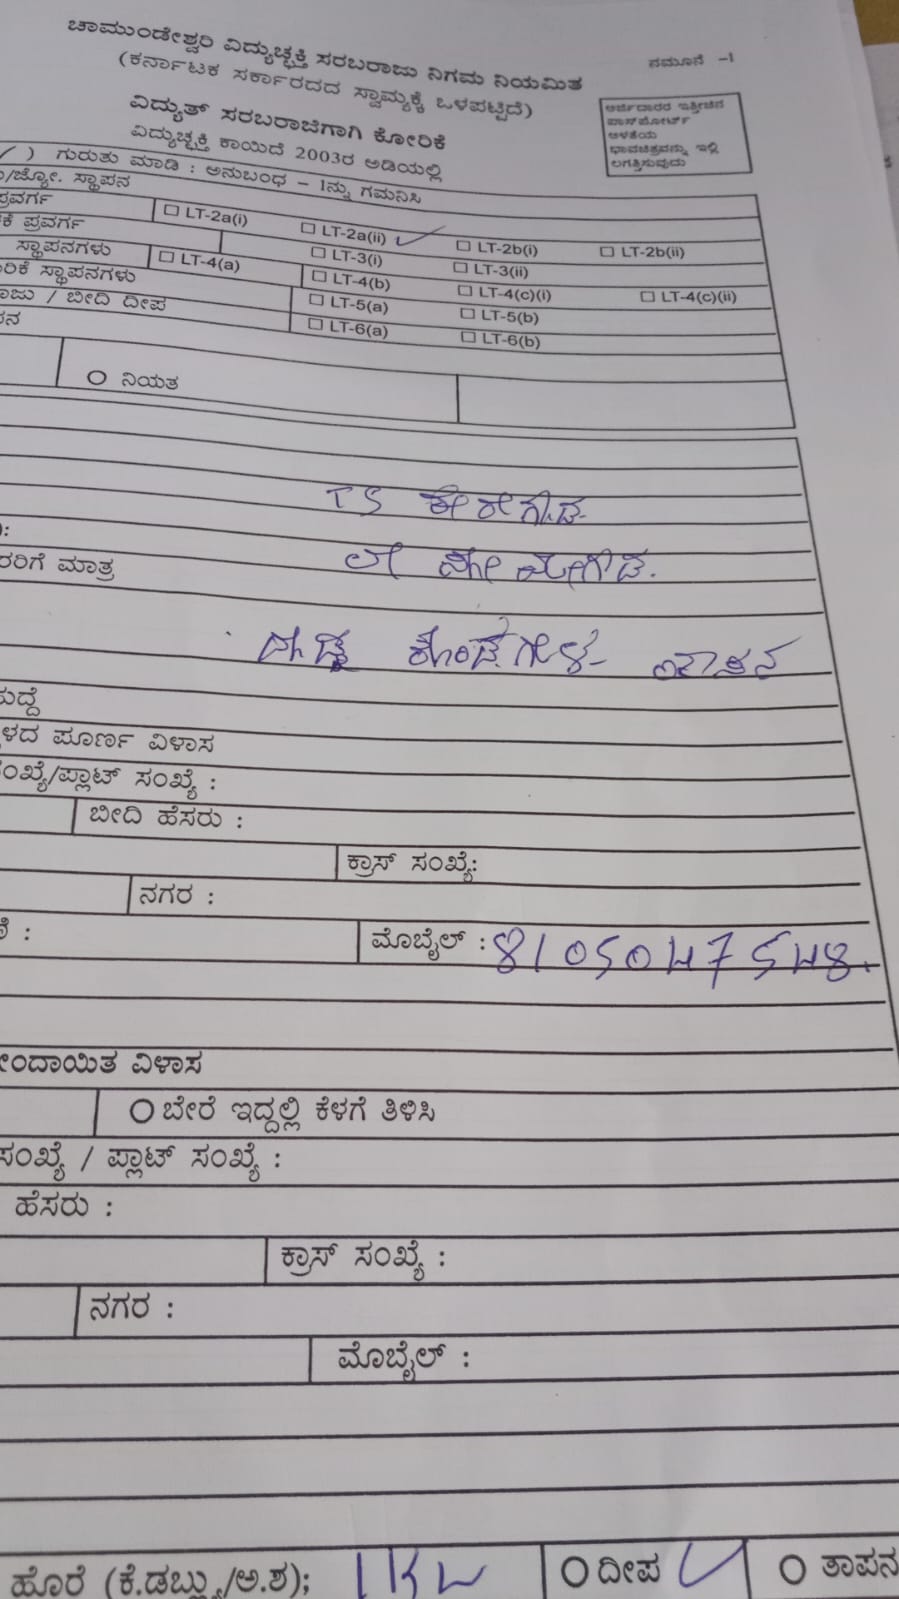 ಚಾಮುಂಡೇಶ್ವರಿ ವಿದ್ಯುಚ್ಛಕ್ತಿ ಸರಬರಾಜು ನಿಗಮ ನಿಯಮಿತ
ನಮೂನೆ -1
(ಕರ್ನಾಟಕ ಸರ್ಕಾರದದ ಸ್ವಾಮ್ಯಕ್ಕೆ ಒಳಪಟ್ಟಿದೆ)
ವಿದ್ಯುತ್ ಸರಬರಾಜಿಗಾಗಿ ಕೋರಿಕೆ
ವಿದ್ಯುಚ್ಛಕ್ತಿ ಕಾಯಿದೆ 2003ರ ಅಡಿಯಲ್ಲಿ
ಅರ್ಜಿದಾರರ ಇತ್ತೀಚಿನ
ಪಾಸ್‌ಪೋರ್ಟ್
ಅಳತೆಯ
ಭಾವಚಿತ್ರವನ್ನು ಇಲ್ಲಿ
ಲಗತ್ತಿಸುವುದು
) ಗುರುತು ಮಾಡಿ : ಅನುಬಂಧ – 1ನ್ನು ಗಮನಿಸಿ
/ಜ್ಯೋ. ಸ್ಥಾಪನ
ಪ್ರವರ್ಗ ☐ LT-2a(i) ☐ LT-2a(ii) ✓ ☐ LT-2b(i) ☐ LT-2b(ii)
ಕೆ ಪ್ರವರ್ಗ ☐ LT-3(i) ☐ LT-3(ii)
ಸ್ಥಾಪನಗಳು ☐ LT-4(a) ☐ LT-4(b) ☐ LT-4(c)(i) ☐ LT-4(c)(ii)
ರಿಕೆ ಸ್ಥಾಪನಗಳು ☐ LT-5(a) ☐ LT-5(b)
ರಾಜು / ಬೀದಿ ದೀಪ ☐ LT-6(a) ☐ LT-6(b)
ಪನ
○ ನಿಯತ
TS
ರರಿಗೆ ಮಾತ್ರ
ಹುದ್ದೆ
ಳದ ಪೂರ್ಣ ವಿಳಾಸ
ಸಂಖ್ಯೆ/ಪ್ಲಾಟ್ ಸಂಖ್ಯೆ :
ಬೀದಿ ಹೆಸರು :
ಕ್ರಾಸ್ ಸಂಖ್ಯೆ:
ನಗರ :
ಮೊಬೈಲ್ : 8105047548.
ಂದಾಯಿತ ವಿಳಾಸ
○ ಬೇರೆ ಇದ್ದಲ್ಲಿ ಕೆಳಗೆ ತಿಳಿಸಿ
ಸಂಖ್ಯೆ / ಪ್ಲಾಟ್ ಸಂಖ್ಯೆ :
ಹೆಸರು :
ಕ್ರಾಸ್ ಸಂಖ್ಯೆ :
ನಗರ :
ಮೊಬೈಲ್ :
ಹೊರೆ (ಕೆ.ಡಬ್ಲ್ಯು/ಅ.ಶ); 1KW ○ ದೀಪ ✓ ○ ತಾಪನ